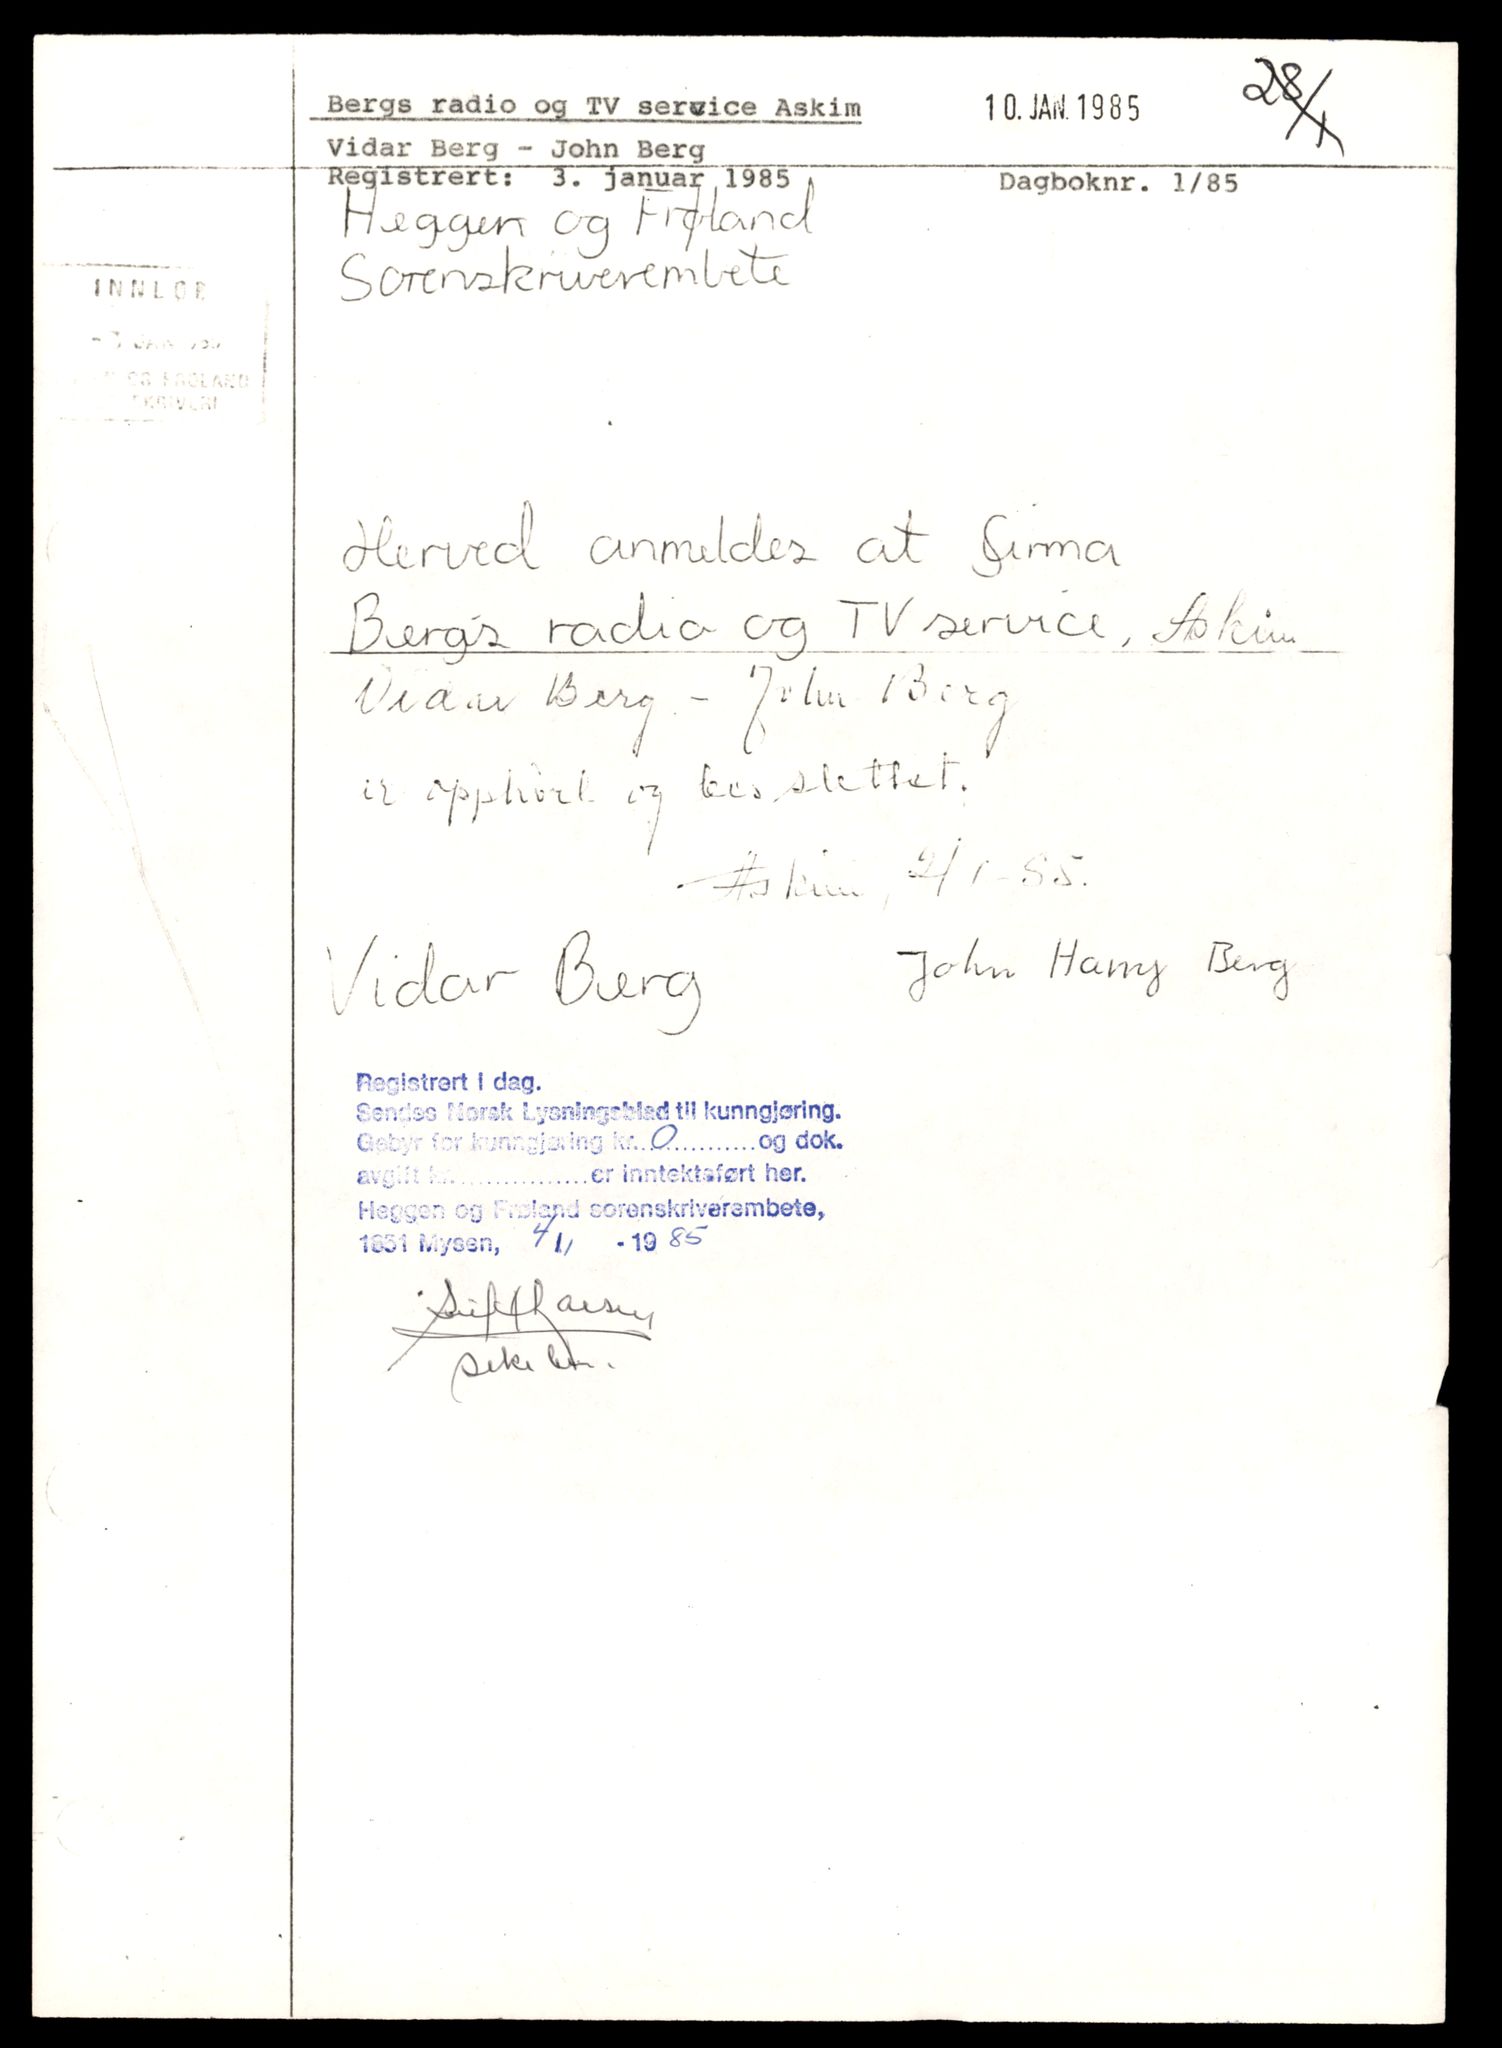 Bergs radio og TV service Askim
10. JAN. 1985
28/1
Vidar Berg - John Berg
Registrert: 3. januar 1985
Dagboknr. 1/85
Heggen og Frøland
Sorenskriverembete
INNLØP
OG FRØLAND
Herved anmeldes at firma
Berg's radio og TV service, Askim
Vidar Berg - John Berg
er opphørt og bes slettet.
Askim, 2/1-85.
Vidar Berg
John Harry Berg
Registrert i dag.
Sendes Norsk Lysningsblad til kunngjøring.
Gebyr for kunngjøring kr. 0 ............ og dok.
avgift kr. ................ er inntektsført her.
Heggen og Frøland sorenskriverembete,
1851 Mysen, 4/1 - 19 85